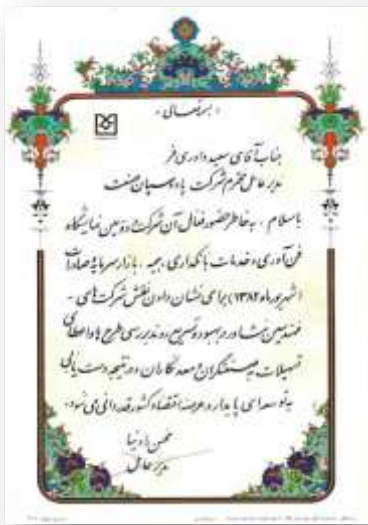 بسمه تعالی
جناب آقای سعید داوری فر
مدیر عامل محترم شرکت پادوسبان صنعت
باسلام ، به خاطر حضور فعال آن شرکت در دومین نمایشگاه
فن آوری و خدمات بانکداری ، بیمه ، بازار سرمایه و صادرات
(شهریور ماه ۱۳۸۲) برای نشان دادن نقش شرکت های
مهندسین مشاور در بهبود و تسریع روند بررسی طرح ها و اعطای
تسهیلات به صنعتگران و معدنکاران و در نتیجه دست یابی
به توسعه ای پایدار در عرصه اقتصاد کشور قدردانی می شود.
محسن
مدیر عامل